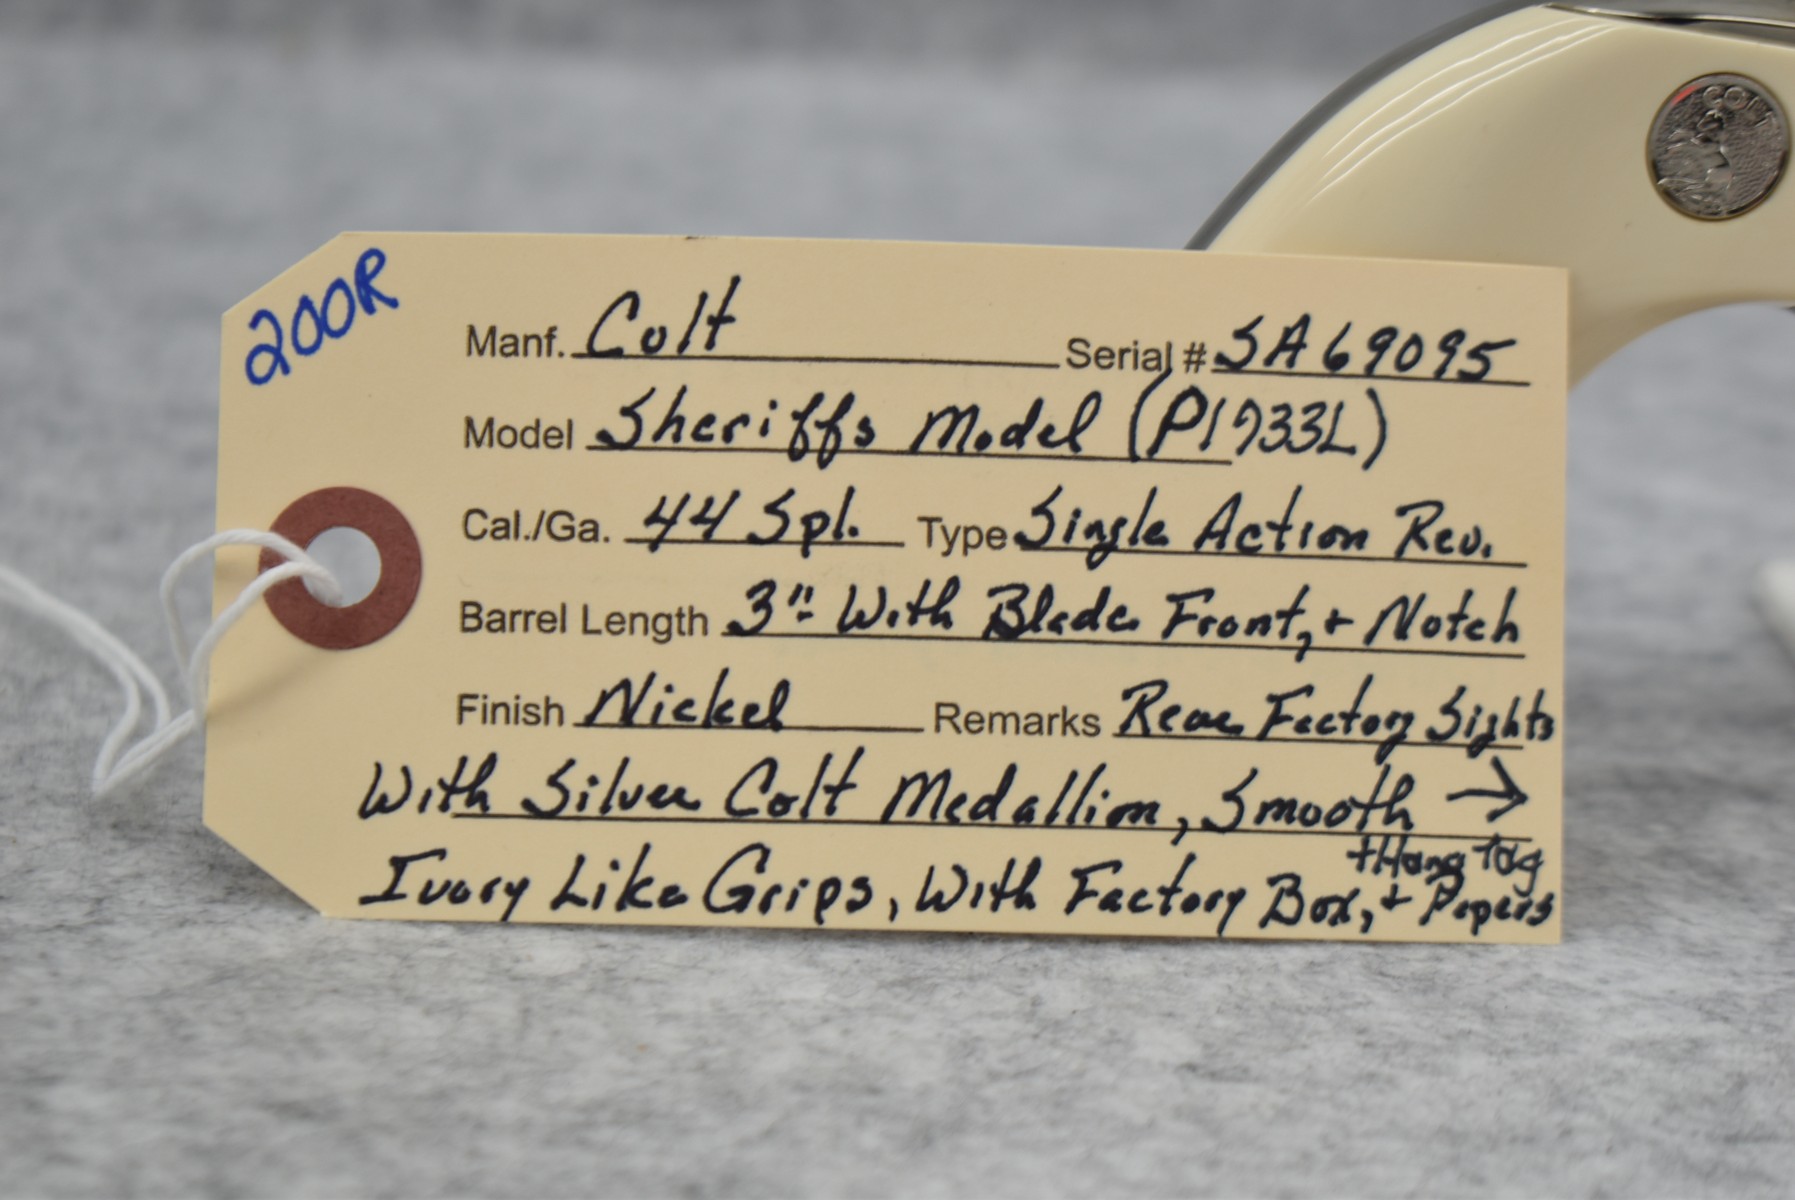 COLT
200R
Manf. Colt Serial # SA69095
Model Sheriffs Model (P1933L)
Cal./Ga. 44 Spl. Type Single Action Rev.
Barrel Length 3"- With Blade Front, + Notch
Finish Nickel Remarks Rear Factory Sights
With Silver Colt Medallion, Smooth →
+Hang Tag
Ivory Like Grips, With Factory Box, + Papers